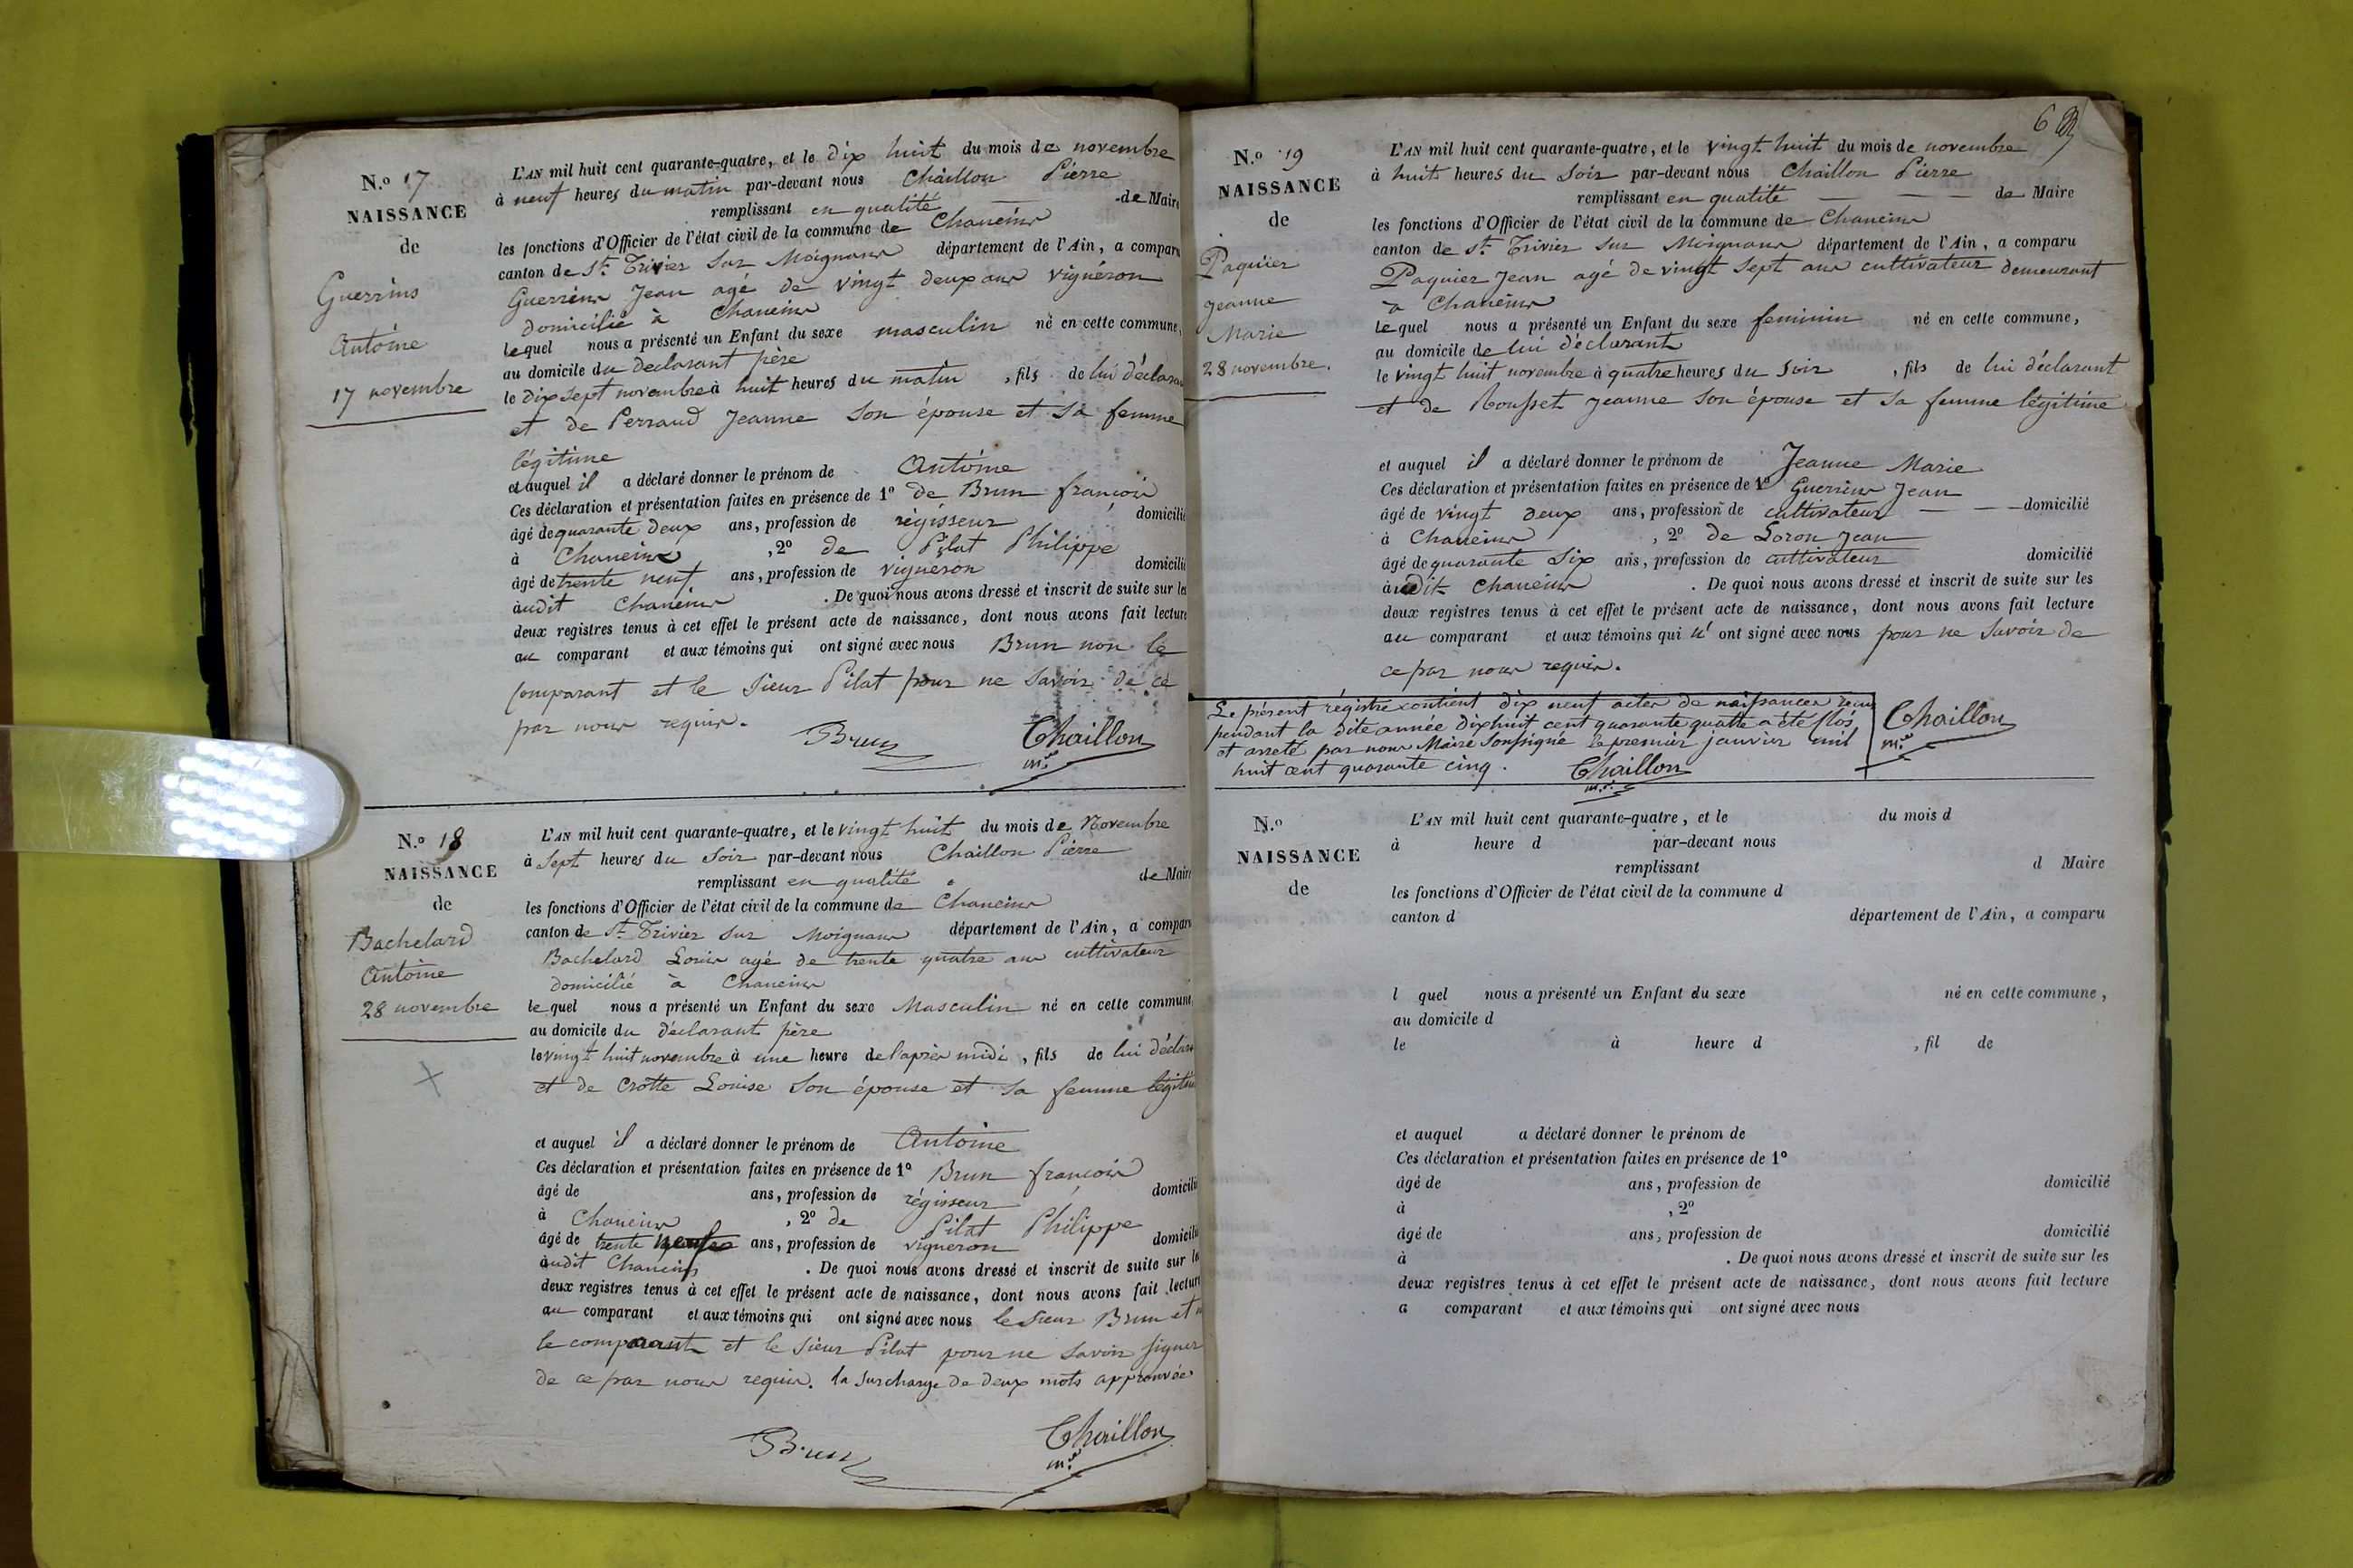 N.o 17
NAISSANCE
de
Guerrins
Antoine
17 novembre
L'AN mil huit cent quarante-quatre, et le dix huit du mois de novembre
à neuf heures du matin par-devant nous Chaillon Pierre
remplissant en qualité de Maire
les fonctions d'Officier de l'état civil de la commune de Chaneins
canton de St. Trivier sur Moignans département de l'Ain, a comparu
Guerrins Jean agé de vingt deux ans vignéron
domicilié à Chaneins
lequel nous a présenté un Enfant du sexe masculin né en cette commune,
au domicile du declarant père
le dix sept novembre à huit heures du matin, fils de lui déclarant
et de Perraud Jeanne son épouse et sa femme
légitime
et auquel il a déclaré donner le prénom de Antoine
Ces déclaration et présentation faites en présence de 1º de Brun françois
âgé de quarante deux ans, profession de régisseur domicilié
à Chaneins, 2º de Pilat Philippe
âgé de trente neuf ans, profession de vigneron domicilié
audit Chaneins. De quoi nous avons dressé et inscrit de suite sur les
deux registres tenus à cet effet le présent acte de naissance, dont nous avons fait lecture
au comparant et aux témoins qui ont signé avec nous Brun non le
comparant et le sieur Pilat pour ne savoir de ce
par nous requis.
Brun Chaillon
m.re
N.o 18
NAISSANCE
de
Bachelard
Antoine
28 novembre
L'AN mil huit cent quarante-quatre, et le vingt huit du mois de Novembre
à sept heures du soir par-devant nous Chaillon Pierre
remplissant en qualité de Maire
les fonctions d'Officier de l'état civil de la commune de Chaneins
canton de St. Trivier sur Moignans département de l'Ain, a comparu
Bachelard Louis agé de trente quatre ans cultivateur
domicilié à Chaneins
lequel nous a présenté un Enfant du sexe Masculin né en cette commune,
au domicile du déclarant père
le vingt huit novembre à une heure de l'après midi, fils de lui déclarant
et de Crotte Louise son épouse et sa femme légitime
et auquel il a déclaré donner le prénom de Antoine
Ces déclaration et présentation faites en présence de 1º Brun françois
âgé de ans, profession de régisseur domicilié
à Chaneins, 2º de Pilat Philippe
âgé de trente neuf ans, profession de vigneron domicilié
audit Chaneins. De quoi nous avons dressé et inscrit de suite sur les
deux registres tenus à cet effet le présent acte de naissance, dont nous avons fait lecture
au comparant et aux témoins qui ont signé avec nous le sieur Brun et
le comparant et le sieur Pilat pour ne savoir signer
de ce par nous requis. la surcharge de deux mots approuvée
Brun Chaillon
m.re
N.o 19
NAISSANCE
de
Paquier
Jeanne
Marie
28 novembre.
L'AN mil huit cent quarante-quatre, et le vingt huit du mois de novembre
à huit heures du soir par-devant nous Chaillon Pierre
remplissant en qualité de Maire
les fonctions d'Officier de l'état civil de la commune de Chaneins
canton de St. Trivier sur Moignans département de l'Ain, a comparu
Paquier Jean agé de vingt sept ans cultivateur demeurant
à Chaneins
lequel nous a présenté un Enfant du sexe feminin né en cette commune,
au domicile de lui déclarant
le vingt huit novembre à quatre heures du soir, fils de lui déclarant
et de Rousset Jeanne son épouse et sa femme légitime
et auquel il a déclaré donner le prénom de Jeanne Marie
Ces déclaration et présentation faites en présence de 1º Guerrins Jean
âgé de vingt deux ans, profession de cultivateur domicilié
à Chaneins, 2º de Loron Jean
âgé de quarante six ans, profession de cultivateur domicilié
audit Chaneins. De quoi nous avons dressé et inscrit de suite sur les
deux registres tenus à cet effet le présent acte de naissance, dont nous avons fait lecture
au comparant et aux témoins qui n'ont signé avec nous pour ne savoir de
ce par nous requis.
Le présent régistre contient dix neuf actes de naissances reçus
pendant la dite année dix huit cent quarante quatre a été clos
et arreté par nous Maire soussigné le premier janvier mil
huit cent quarante cinq. Chaillon
m.re
Chaillon
m.re
N.o
NAISSANCE
de
L'AN mil huit cent quarante-quatre, et le du mois d
à heure d par-devant nous
remplissant d Maire
les fonctions d'Officier de l'état civil de la commune d
canton d département de l'Ain, a comparu
l quel nous a présenté un Enfant du sexe né en cette commune,
au domicile d
le à heure d , fil de
et auquel a déclaré donner le prénom de
Ces déclaration et présentation faites en présence de 1º
âgé de ans, profession de domicilié
à , 2º
âgé de ans, profession de domicilié
à . De quoi nous avons dressé et inscrit de suite sur les
deux registres tenus à cet effet le présent acte de naissance, dont nous avons fait lecture
a comparant et aux témoins qui ont signé avec nous